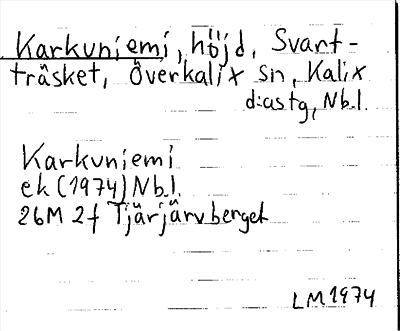 Karkuniemi, höjd, Svart-
träsket, Överkalix sn, Kalix
d:astg, Nb.l.
Karkuniemi
ek (1974) Nb.l.
26M 2f Tjärjärvberget
LM 1974